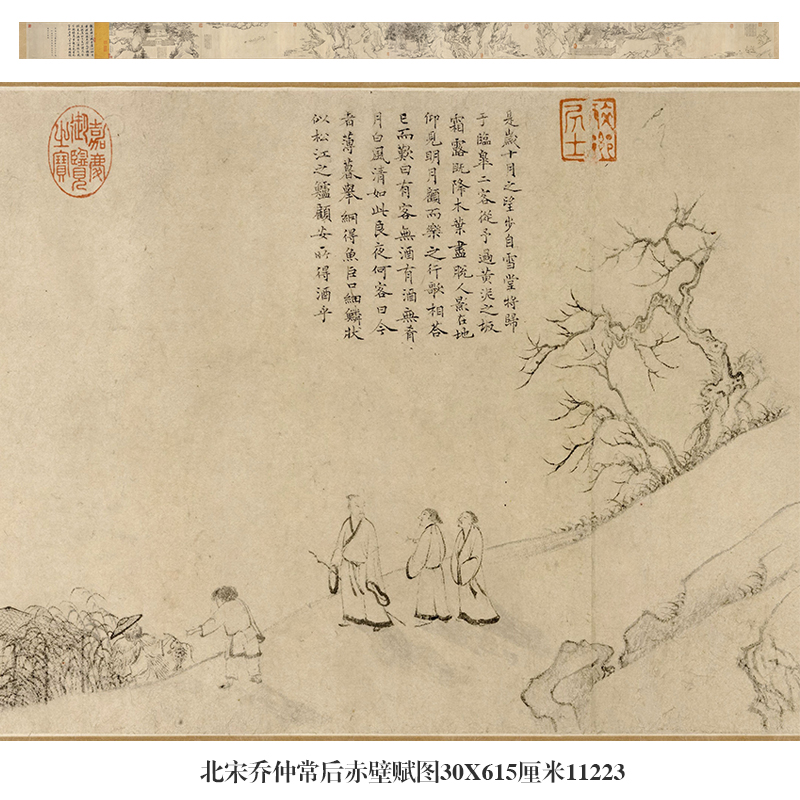 是歲十月之望步自雪堂將歸
于臨皋二客從予過黃泥之坂
霜露既降木葉盡脫人影在地
仰見明月顧而樂之行歌相答
已而歎曰有客無酒有酒無肴
月白風清如此良夜何客曰今
者薄暮舉網得魚巨口細鱗狀
似松江之鱸顧安所得酒乎
嘉慶
御覽
之寶
北宋乔仲常后赤壁赋图30X615厘米11223